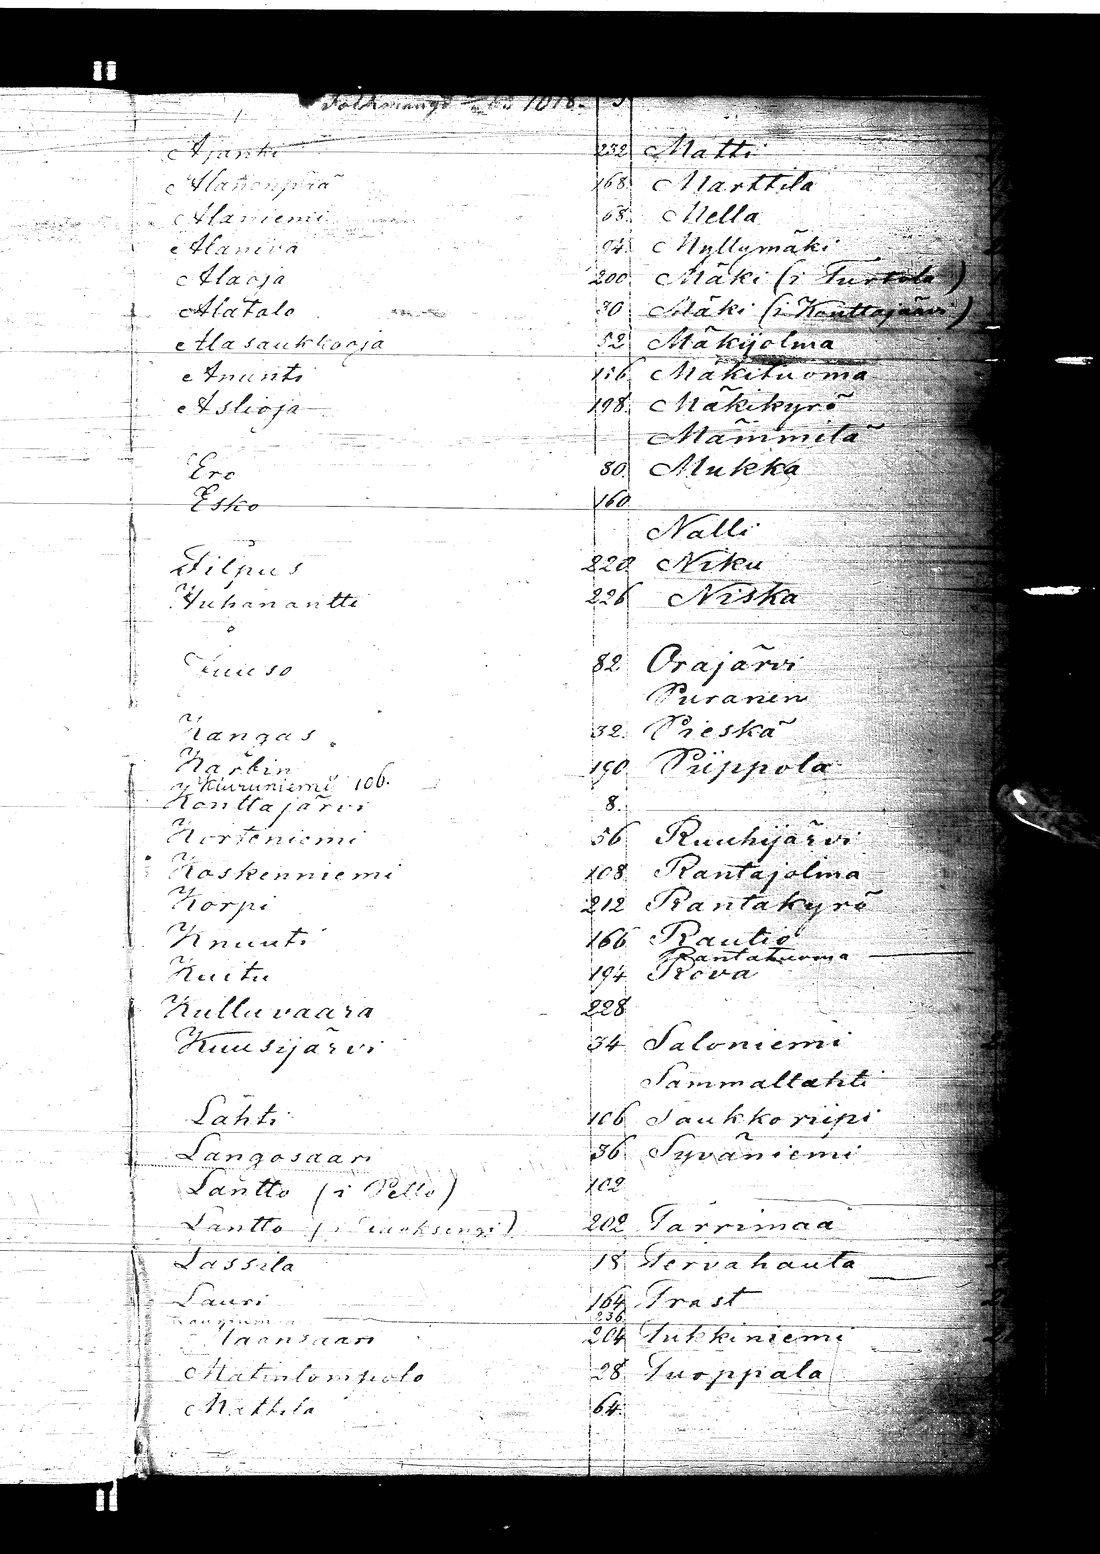 Ajanki 232 Matti
Alanenpää 168 Marttila
Alaniemi 68 Mella
Alaniva 94 Myllymäki
Alaoja 200 Mäki (i Turtola)
Alatalo 30 Mäki (i Konttajärvi)
Alasaukkooja 52 Mäkijolma
Ananti 156 Mäkituoma
Aslioja 198 Mäkikyrö
Mämmilä
Ero 80 Mukka
Esko 160
Nalli
Filpus 220 Niku
Juhanantti 226 Niska
Juuso 82 Orajärvi
Puranen
Kangas 32 Pieskä
Karbin 190 Piippola
Kiuruniemi 106.
Konttajärvi 8.
Korteniemi 56 Ruuhijärvi
Koskenniemi 108 Rantajolma
Korpi 212 Rantakyrö
Knuuti 166 Rautio
Rantatuoma
Kuitu 194 Rova
Kulluvaara 228
Kuusijärvi 34 Saloniemi
Sammallahti
Lahti 106 Saukkoriipi
Langosaari 36 Syväniemi
Lantto (i Pello) 102
Lantto (i Turtola) 202 Tärrimaa
Lassila 18 Tervahauta
Lauri 164 Trast
236
Maansaari 204 Tukkiniemi
Matinlompolo 28 Turppala
Mattila 64